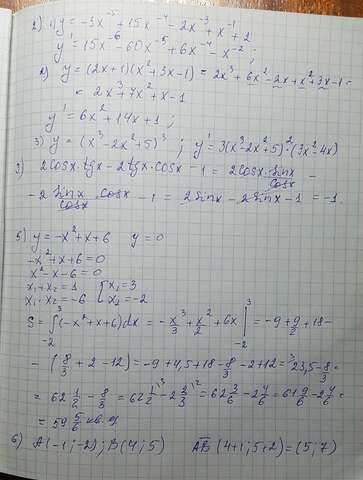 2) 1) y = -3x⁻⁵ + 15x⁻⁴ - 2x⁻³ + x⁻¹ + 2
y' = 15x⁻⁶ - 60x⁻⁵ + 6x⁻⁴ - x⁻² ;
2) y = (2x+1)(x²+3x-1) = 2x³ + 6x² - 2x + x² + 3x - 1 =
= 2x³ + 7x² + x - 1
y' = 6x² + 14x + 1 ;
3) y = (x³ - 2x² + 5)³ ; y' = 3(x³ - 2x² + 5)² · (3x² - 4x)
3) 2cosx · tgx - 2tgx · cosx - 1 = 2cosx · sinx/cosx -
- 2 sinx/cosx · cosx - 1 = 2sinx - 2sinx - 1 = -1.
5) y = -x² + x + 6 y = 0
-x² + x + 6 = 0
x² - x - 6 = 0
x₁ + x₂ = 1 { x₁ = 3
x₁ · x₂ = -6 x₂ = -2
S = ∫₋₂³ (-x² + x + 6)dx = -x³/3 + x²/2 + 6x |₋₂³ = -9 + 9/2 + 18 -
- (8/3 + 2 - 12) = -9 + 4,5 + 18 - 8/3 - 2 + 12 = 23,5 - 8/3 =
= 62 1/2 - 8/3 = 62 1/2 - 2 2/3 = 62 3/6 - 2 4/6 = 61 9/6 - 2 4/6 =
= 59 5/6 кв. ед
6) A(-1; -2); B(4; 5) AB (4+1; 5+2) = (5; 7)